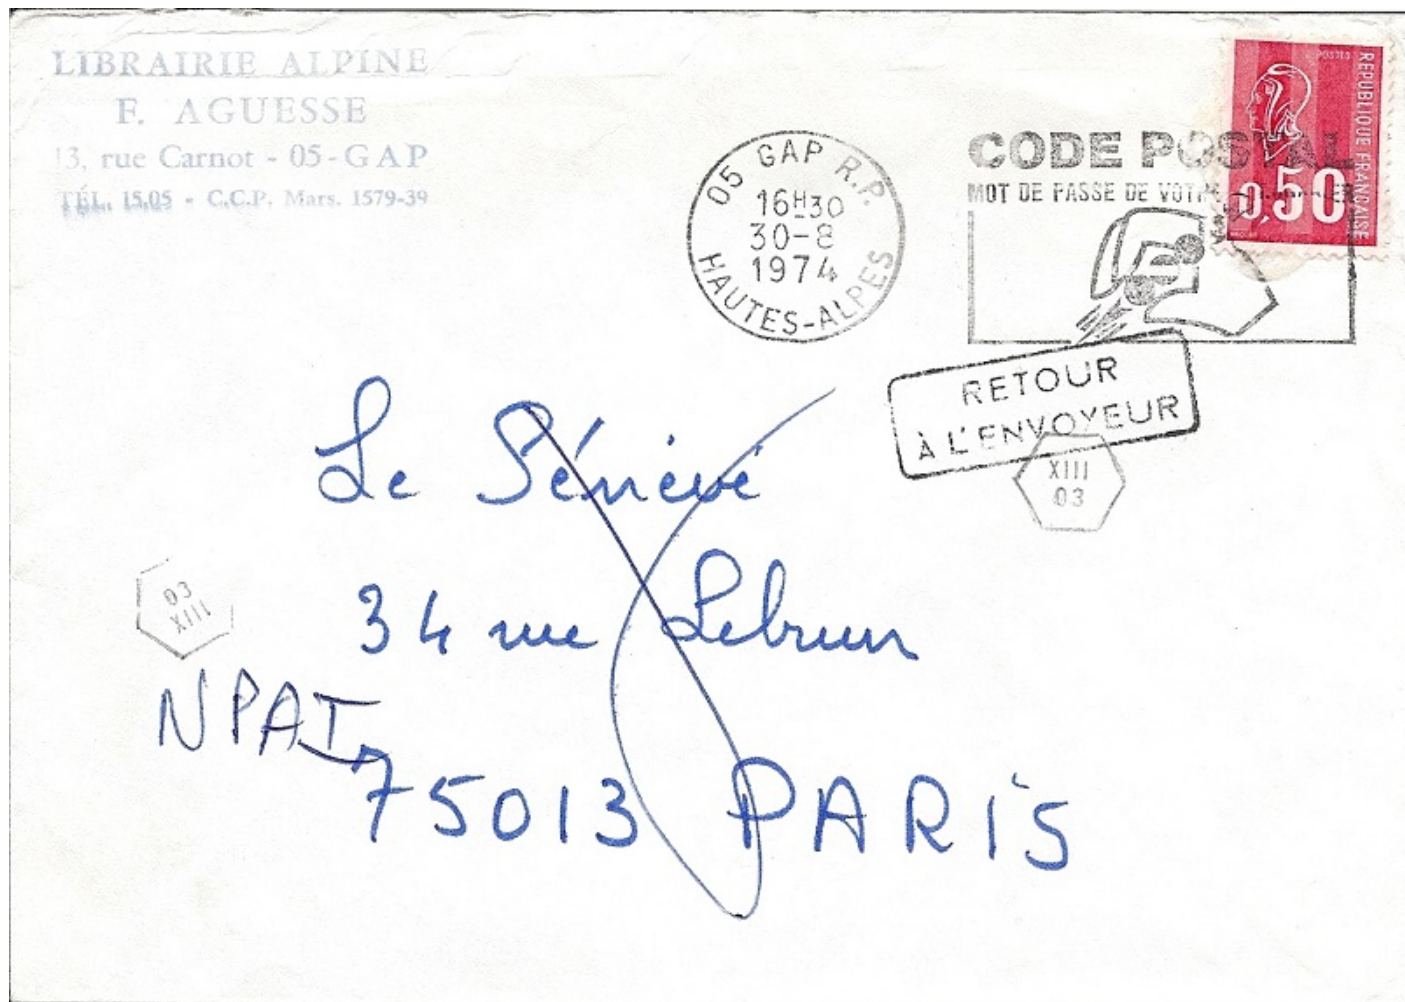 LIBRAIRIE ALPINE
F. AGUESSE
13, rue Carnot - 05 - GAP
TÉL. 15.05 - C.C.P. Mars. 1579-39
05 GAP R.P.
16H30
30-8
1974
HAUTES-ALPES
CODE POSTAL
MOT DE PASSE DE VOTRE
POSTES
REPUBLIQUE FRANÇAISE
0,50
RETOUR
À L'ENVOYEUR
XIII
03
Le Sénevé
34 rue Lebrun
03
XIII
NPAI
75013 PARIS